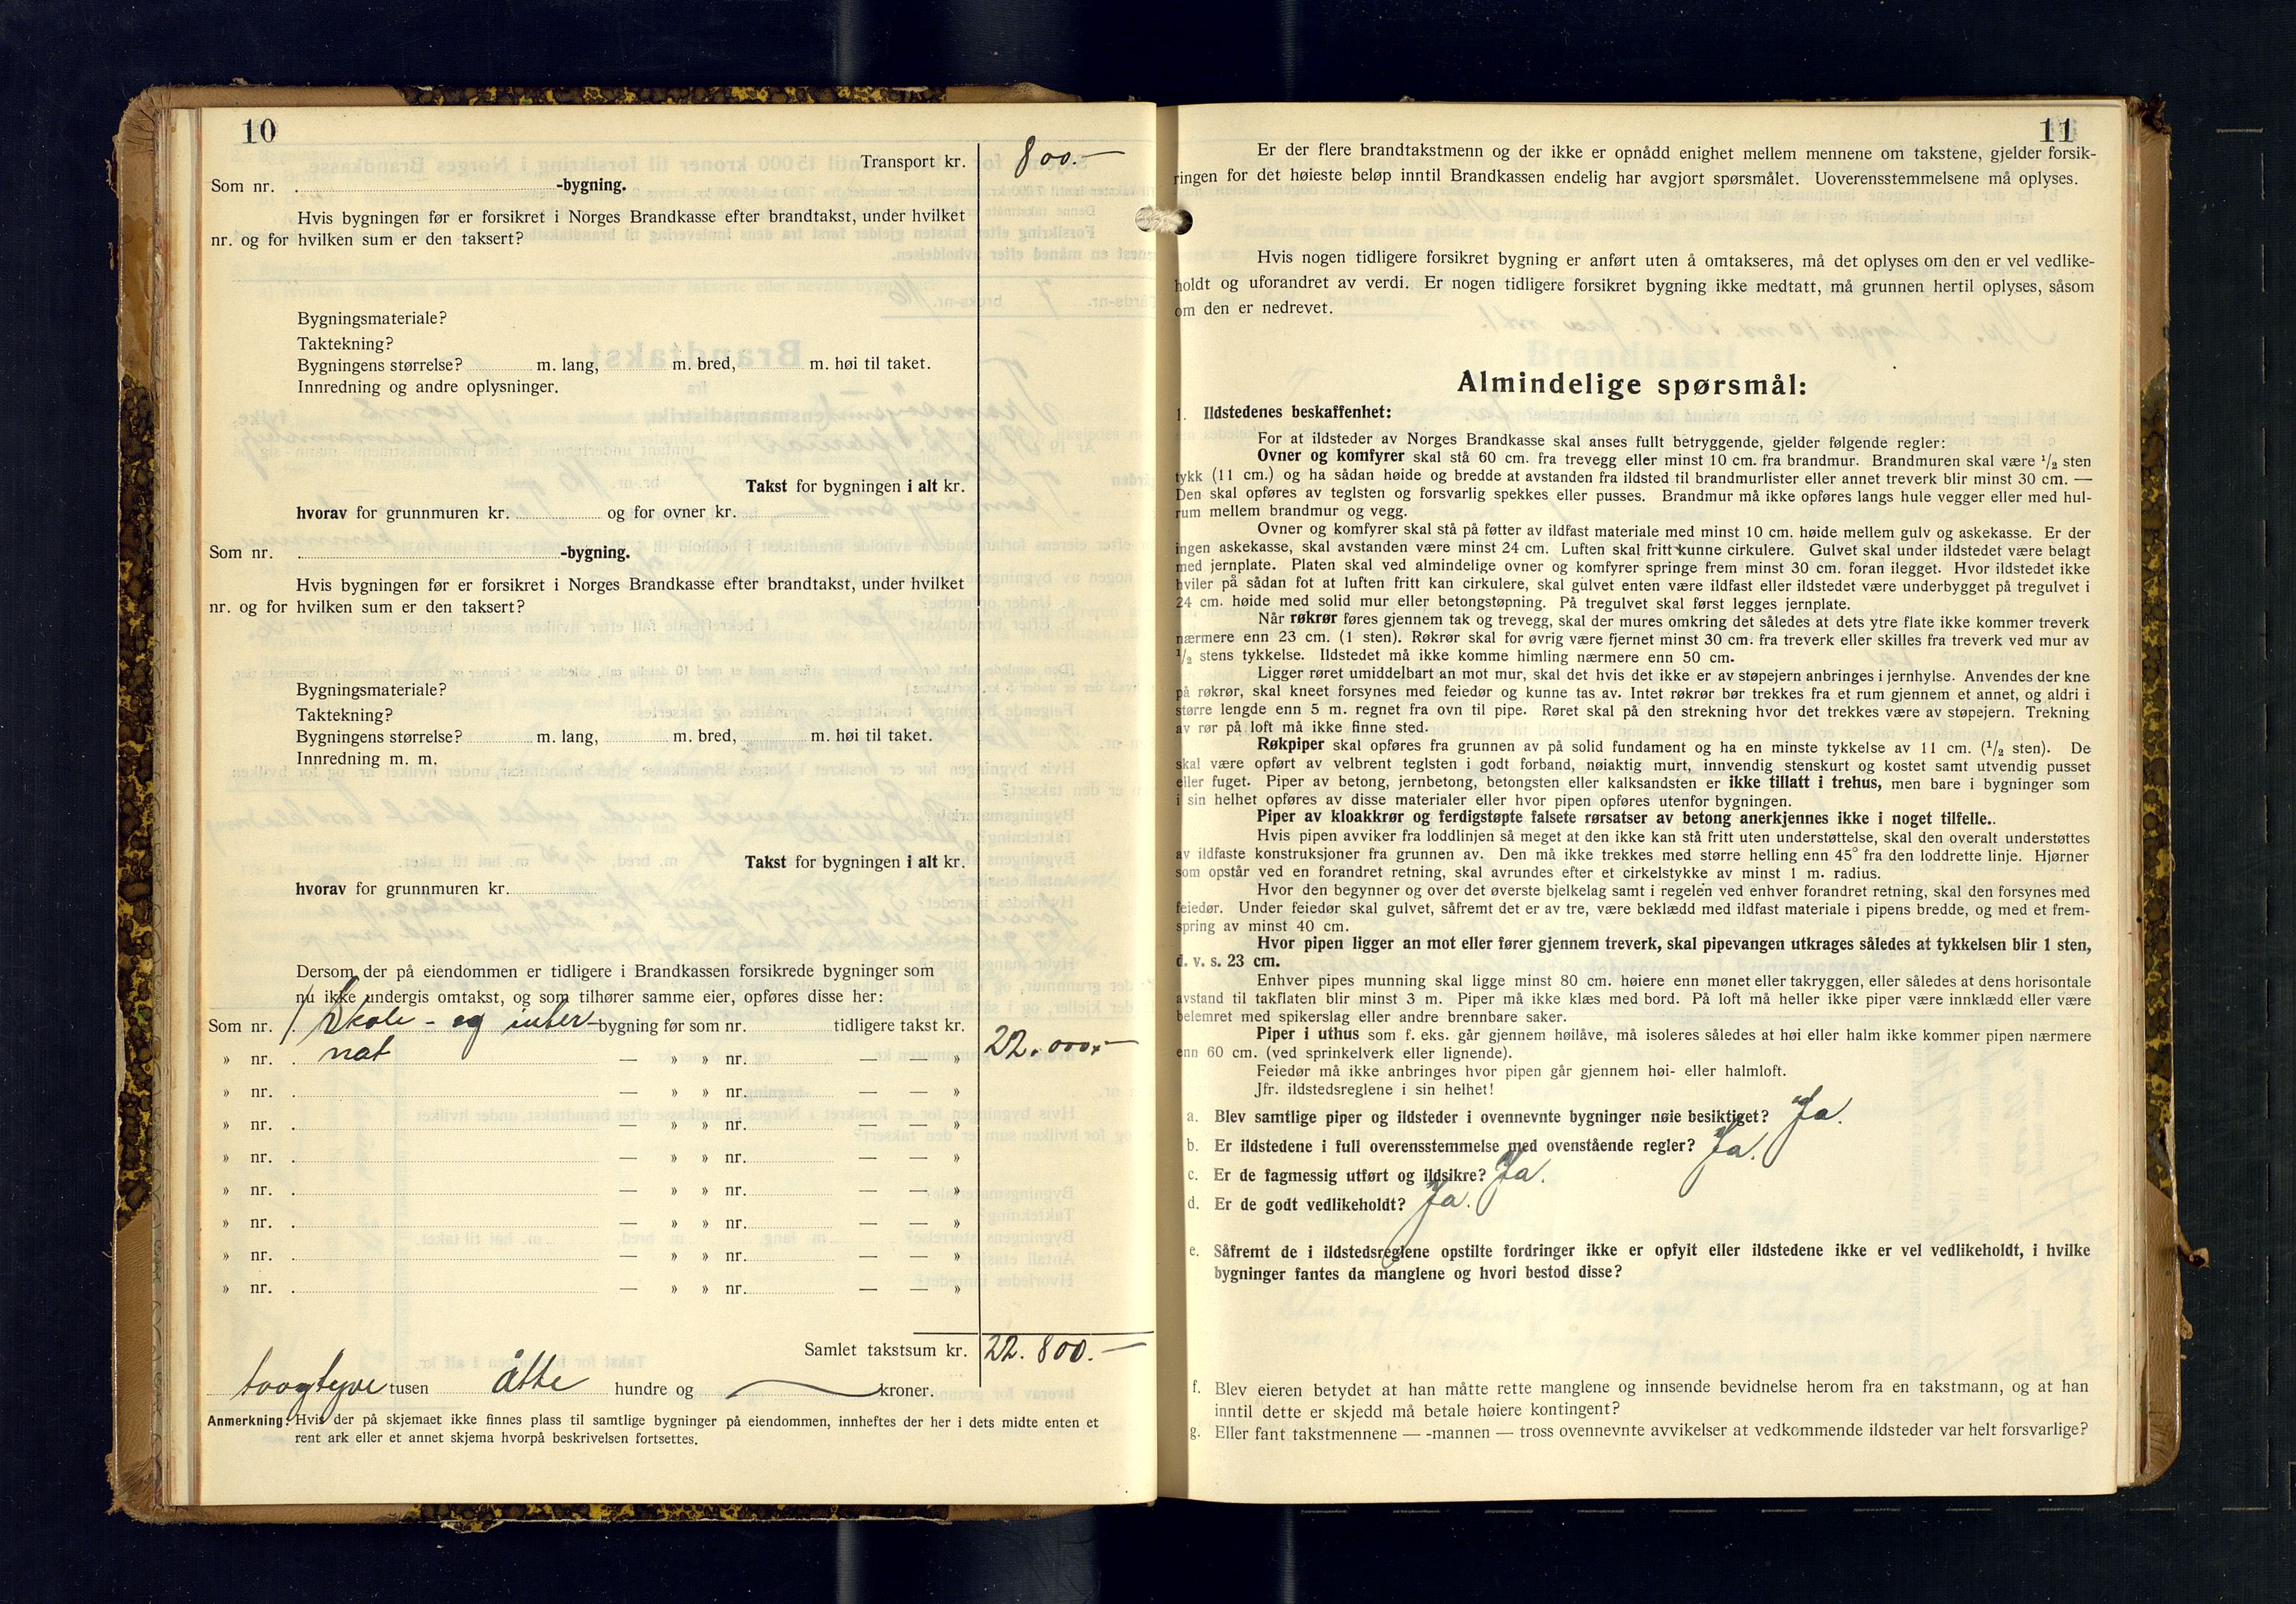 10
Transport kr. 800.—
Som nr. -bygning.
Hvis bygningen før er forsikret i Norges Brandkasse efter brandtakst, under hvilket
nr. og for hvilken sum er den taksert?
Bygningsmateriale?
Taktekning?
Bygningens størrelse? m. lang, m. bred, m. høi til taket.
Innredning og andre oplysninger.
Takst for bygningen i alt kr.
hvorav for grunnmuren kr. og for ovner kr.
Som nr. -bygning.
Hvis bygningen før er forsikret i Norges Brandkasse efter brandtakst, under hvilket
nr. og for hvilken sum er den taksert?
Bygningsmateriale?
Taktekning?
Bygningens størrelse? m. lang, m. bred, m. høi til taket.
Innredning m. m.
Takst for bygningen i alt kr.
hvorav for grunnmuren kr.
Dersom der på eiendommen er tidligere i Brandkassen forsikrede bygninger som
nu ikke undergis omtakst, og som tilhører samme eier, opføres disse her:
Som nr. 1 Skole- og inter- bygning før som nr. tidligere takst kr.
» nr. nat — » » nr. — — » 22.000.—
» nr. — » » nr. — — »
» nr. — » » nr. — — »
» nr. — » » nr. — — »
» nr. — » » nr. — — »
» nr. — » » nr. — — »
» nr. — » » nr. — — »
» nr. — » » nr. — — »
Samlet takstsum kr. 22.800.—
toogtyve tusen åtte hundre og — kroner.
Anmerkning: Hvis der på skjemaet ikke finnes plass til samtlige bygninger på eiendommen, innheftes der her i dets midte enten et
rent ark eller et annet skjema hvorpå beskrivelsen fortsettes.
11
Er der flere brandtakstmenn og der ikke er opnådd enighet mellem mennene om takstene, gjelder forsik-
ringen for det høieste beløp inntil Brandkassen endelig har avgjort spørsmålet. Uoverensstemmelsene må oplyses.
Hvis nogen tidligere forsikret bygning er anført uten å omtakseres, må det oplyses om den er vel vedlike-
holdt og uforandret av verdi. Er nogen tidligere forsikret bygning ikke medtatt, må grunnen hertil oplyses, såsom
om den er nedrevet.
Almindelige spørsmål:
1. Ildstedenes beskaffenhet:
For at ildsteder av Norges Brandkasse skal anses fullt betryggende, gjelder følgende regler:
Ovner og komfyrer skal stå 60 cm. fra trevegg eller minst 10 cm. fra brandmur. Brandmuren skal være 1/2 sten
tykk (11 cm.) og ha sådan høide og bredde at avstanden fra ildsted til brandmurlister eller annet treverk blir minst 30 cm. —
Den skal opføres av teglsten og forsvarlig spekkes eller pusses. Brandmur må ikke opføres langs hule vegger eller med hul-
rum mellem brandmur og vegg.
Ovner og komfyrer skal stå på føtter av ildfast materiale med minst 10 cm. høide mellem gulv og askekasse. Er der
ingen askekasse, skal avstanden være minst 24 cm. Luften skal fritt kunne cirkulere. Gulvet skal under ildstedet være belagt
med jernplate. Platen skal ved almindelige ovner og komfyrer springe frem minst 30 cm. foran ilegget. Hvor ildstedet ikke
hviler på sådan fot at luften fritt kan cirkulere, skal gulvet enten være ildfast eller ildstedet være underbygget på tregulvet i
24 cm. høide med solid mur eller betongstøpning. På tregulvet skal først legges jernplate.
Når røkrør føres gjennem tak og trevegg, skal der mures omkring det således at dets ytre flate ikke kommer treverk
nærmere enn 23 cm. (1 sten). Røkrør skal for øvrig være fjernet minst 30 cm. fra treverk eller skilles fra treverk ved mur av
1/2 stens tykkelse. Ildstedet må ikke komme himling nærmere enn 50 cm.
Ligger røret umiddelbart an mot mur, skal det hvis det ikke er av støpejern anbringes i jernhylse. Anvendes der kne
på røkrør, skal kneet forsynes med feiedør og kunne tas av. Intet røkrør bør trekkes fra et rum gjennem et annet, og aldri i
større lengde enn 5 m. regnet fra ovn til pipe. Røret skal på den strekning hvor det trekkes være av støpejern. Trekning
av rør på loft må ikke finne sted.
Røkpiper skal opføres fra grunnen av på solid fundament og ha en minste tykkelse av 11 cm. (1/2 sten). De
skal være opført av velbrent teglsten i godt forband, nøiaktig murt, innvendig stenskurt og kostet samt utvendig pusset
eller fuget. Piper av betong, jernbetong, betongsten eller kalksandsten er ikke tillatt i trehus, men bare i bygninger som
i sin helhet opføres av disse materialer eller hvor pipen opføres utenfor bygningen.
Piper av kloakkrør og ferdigstøpte falsete rørsatser av betong anerkjennes ikke i noget tilfelle..
Hvis pipen avviker fra loddlinjen så meget at den ikke kan stå fritt uten understøttelse, skal den overalt understøttes
av ildfaste konstruksjoner fra grunnen av. Den må ikke trekkes med større helling enn 45° fra den loddrette linje. Hjørner
som opstår ved en forandret retning, skal avrundes efter et cirkelstykke av minst 1 m. radius.
Hvor den begynner og over det øverste bjelkelag samt i regelen ved enhver forandret retning, skal den forsynes med
feiedør. Under feiedør skal gulvet, såfremt det er av tre, være beklædd med ildfast materiale i pipens bredde, og med et frem-
spring av minst 40 cm.
Hvor pipen ligger an mot eller fører gjennem treverk, skal pipevangen utkrages således at tykkelsen blir 1 sten,
d. v. s. 23 cm.
Enhver pipes munning skal ligge minst 80 cm. høiere enn mønet eller takryggen, eller således at dens horisontale
avstand til takflaten blir minst 3 m. Piper må ikke klæs med bord. På loft må heller ikke piper være innklædd eller være
belemret med spikerslag eller andre brennbare saker.
Piper i uthus som f. eks. går gjennem høilåve, må isoleres således at høi eller halm ikke kommer pipen nærmere
enn 60 cm. (ved sprinkelverk eller lignende).
Feiedør må ikke anbringes hvor pipen går gjennem høi- eller halmloft.
Jfr. ildstedsreglene i sin helhet!
a. Blev samtlige piper og ildsteder i ovennevnte bygninger nøie besiktiget? Ja.
b. Er ildstedene i full overensstemmelse med ovenstående regler? Ja.
c. Er de fagmessig utført og ildsikre? Ja.
d. Er de godt vedlikeholdt? Ja.
e. Såfremt de i ildstedsreglene opstilte fordringer ikke er opfylt eller ildstedene ikke er vel vedlikeholdt, i hvilke
bygninger fantes da manglene og hvori bestod disse?
f. Blev eieren betydet at han måtte rette manglene og innsende bevidnelse herom fra en takstmann, og at han
inntil dette er skjedd må betale høiere kontingent?
g. Eller fant takstmennene — -mannen — tross ovennevnte avvikelser at vedkommende ildsteder var helt forsvarlige?